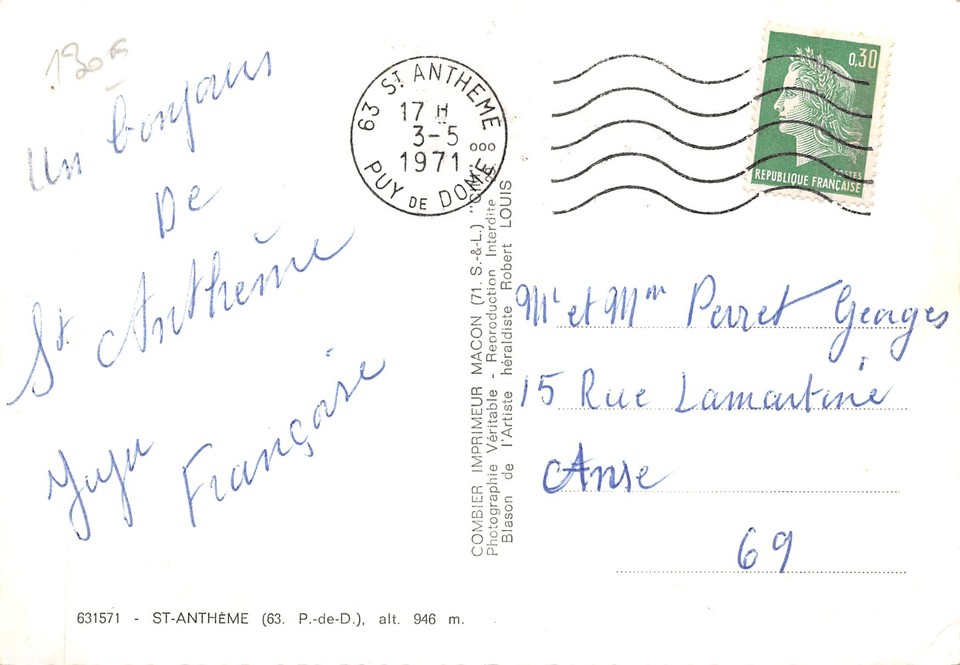 Un bonjour
De
St. Anthème
Juju
Françoise
63 ST ANTHEME
17 H
3-5
1971
PUY DE DOME
0,30
POSTES
REPUBLIQUE FRANÇAISE
COMBIER IMPRIMEUR MACON (71. S.-&-L.)
Photographie Véritable - Reproduction Interdite
Blason de l'Artiste héraldiste Robert LOUIS
Mr et Mme Perret Georges
15 Rue Lamartine
Anse
69
631571 - ST-ANTHÈME (63. P.-de-D.), alt. 946 m.